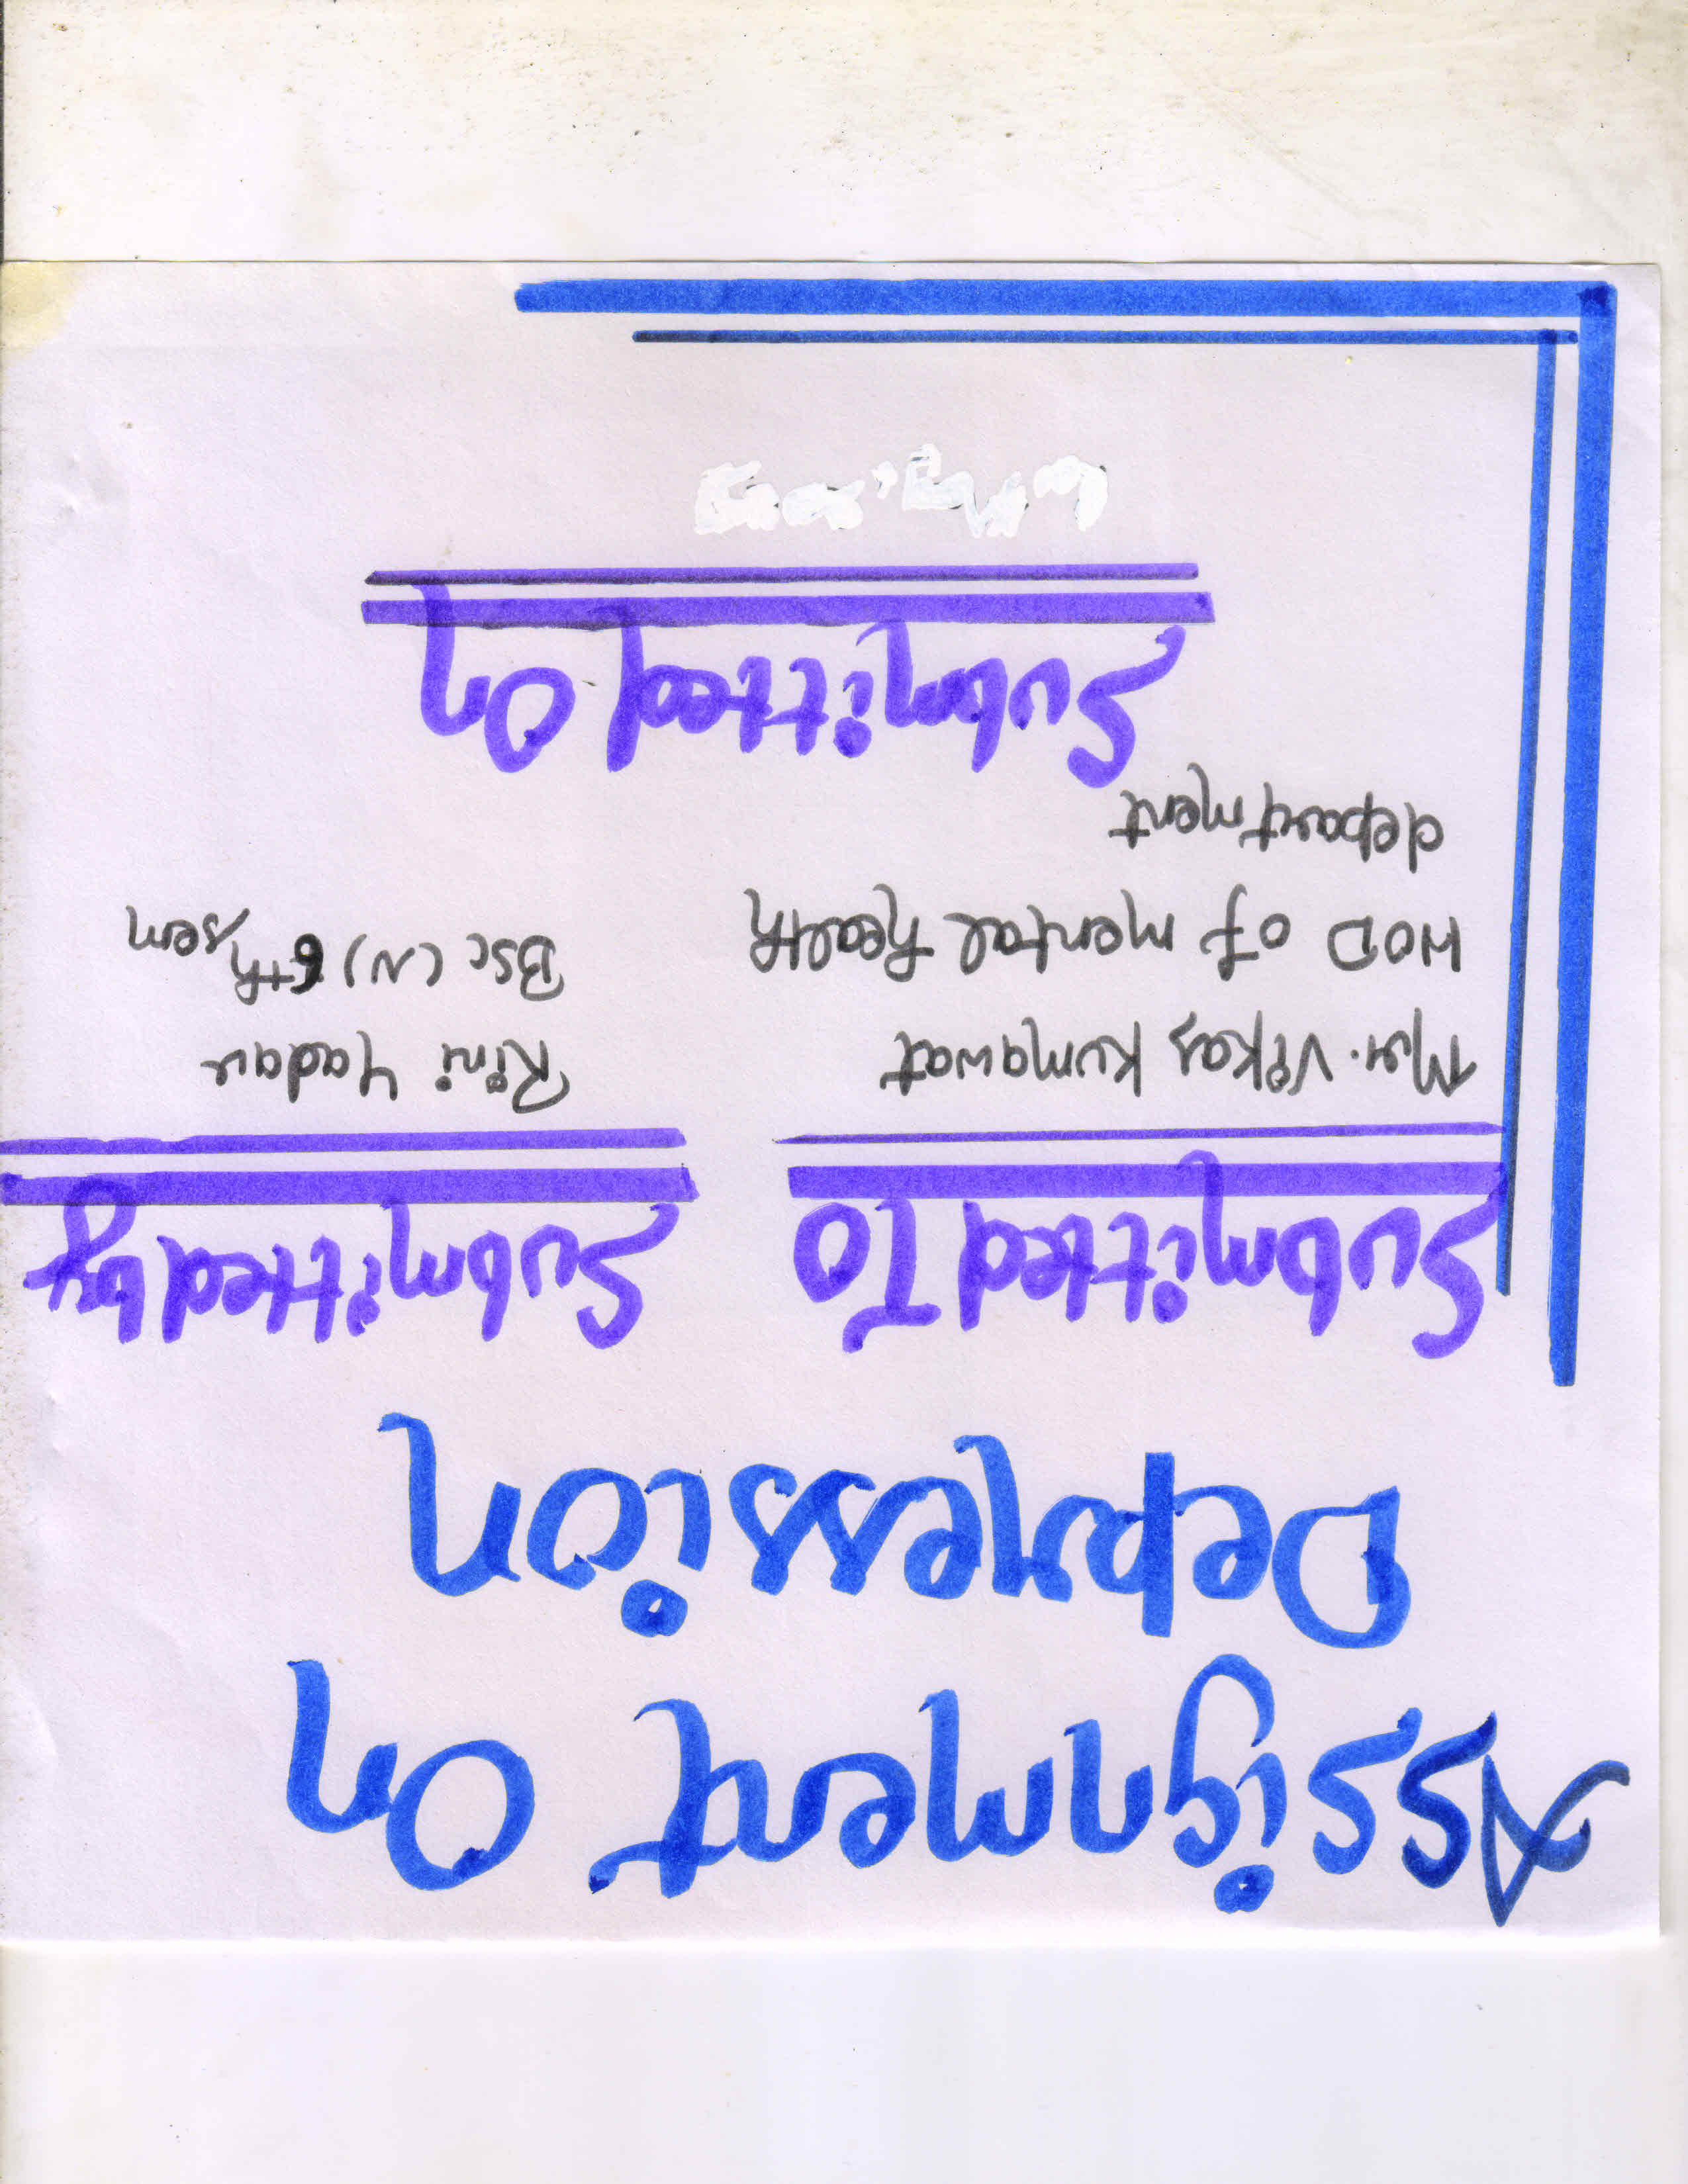 Assignment On
Depression
Submitted To
Submitted by
Mr. Vikas Kumawat
Rini Yadav
HOD of mental health
BSc (N) 6th sem
department
Submitted On